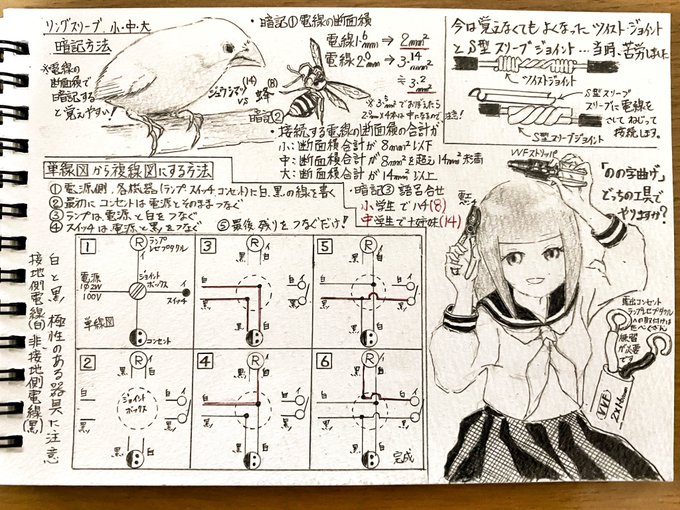 リングスリーブ 小・中・大
暗記方法
※電線の
断面積で
暗記する
と覚えやすい!
ジュウシマツ
(14)
VS
蜂
(8)
・暗記① 電線の断面積
電線1.6mm → 2mm²
電線2.0mm → 3.14mm²
≒ 3.2mm²
暗記②
・接続する電線の断面積の合計が
小：断面積合計が 8mm²以下
中：断面積合計が 8mm²を超え14mm²未満
大：断面積合計が 14mm²以上
・暗記③ 語呂合せ
小学生で ハチ(8)
中学生で 十姉妹(14)
今は覚えなくてもよくなった ツイスト・ジョイント
と S型 スリーブジョイント…当時、苦労しました
ツイストジョイント
S型スリーブ
スリーブに電線を
さして ねじって
接続します。
S型スリーブジョイント
単線図から複線図にする方法
① 電源側、各機器(ランプ スイッチ コンセト)に白、黒の線を書く
② 最初に コンセトは電源とそのままつなぐ
③ ランプは電源と白をつなぐ
④ スイッチは電源と黒をつなぐ
⑤ 最後 残りをつなぐだけ!
白と黒 極性のある器具に注意
接地側電線(白) 非接地側電線(黒)
1
R
イ
ランプ
レセプタクル
電源
1Φ2W
100V
ジョイント
ボックス
イ
スイッチ
単線図
コンセント
2
R
イ
黒
白
白
黒
ジョイント
ボックス
白
黒
イ
黒
白
3
R
イ
黒
白
白
黒
白
黒
イ
黒
白
4
R
イ
黒
白
白
黒
白
黒
イ
黒
白
5
R
イ
黒
白
白
黒
白
黒
イ
黒
白
6
R
イ
黒
白
白
黒
白
黒
イ
黒
白
完成
VVFストリッパ
「のの字曲げ」
どっちの工具で
やりますか?
露出コンセント
ランプレセプタクル
への取付けは
練習
が必要
です
VVF
2×1.6mm